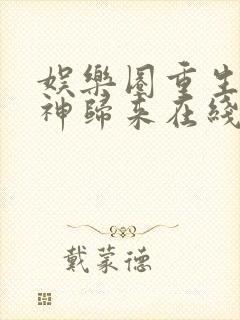 娛樂圈重生
神歸來在綫
戴蒙德